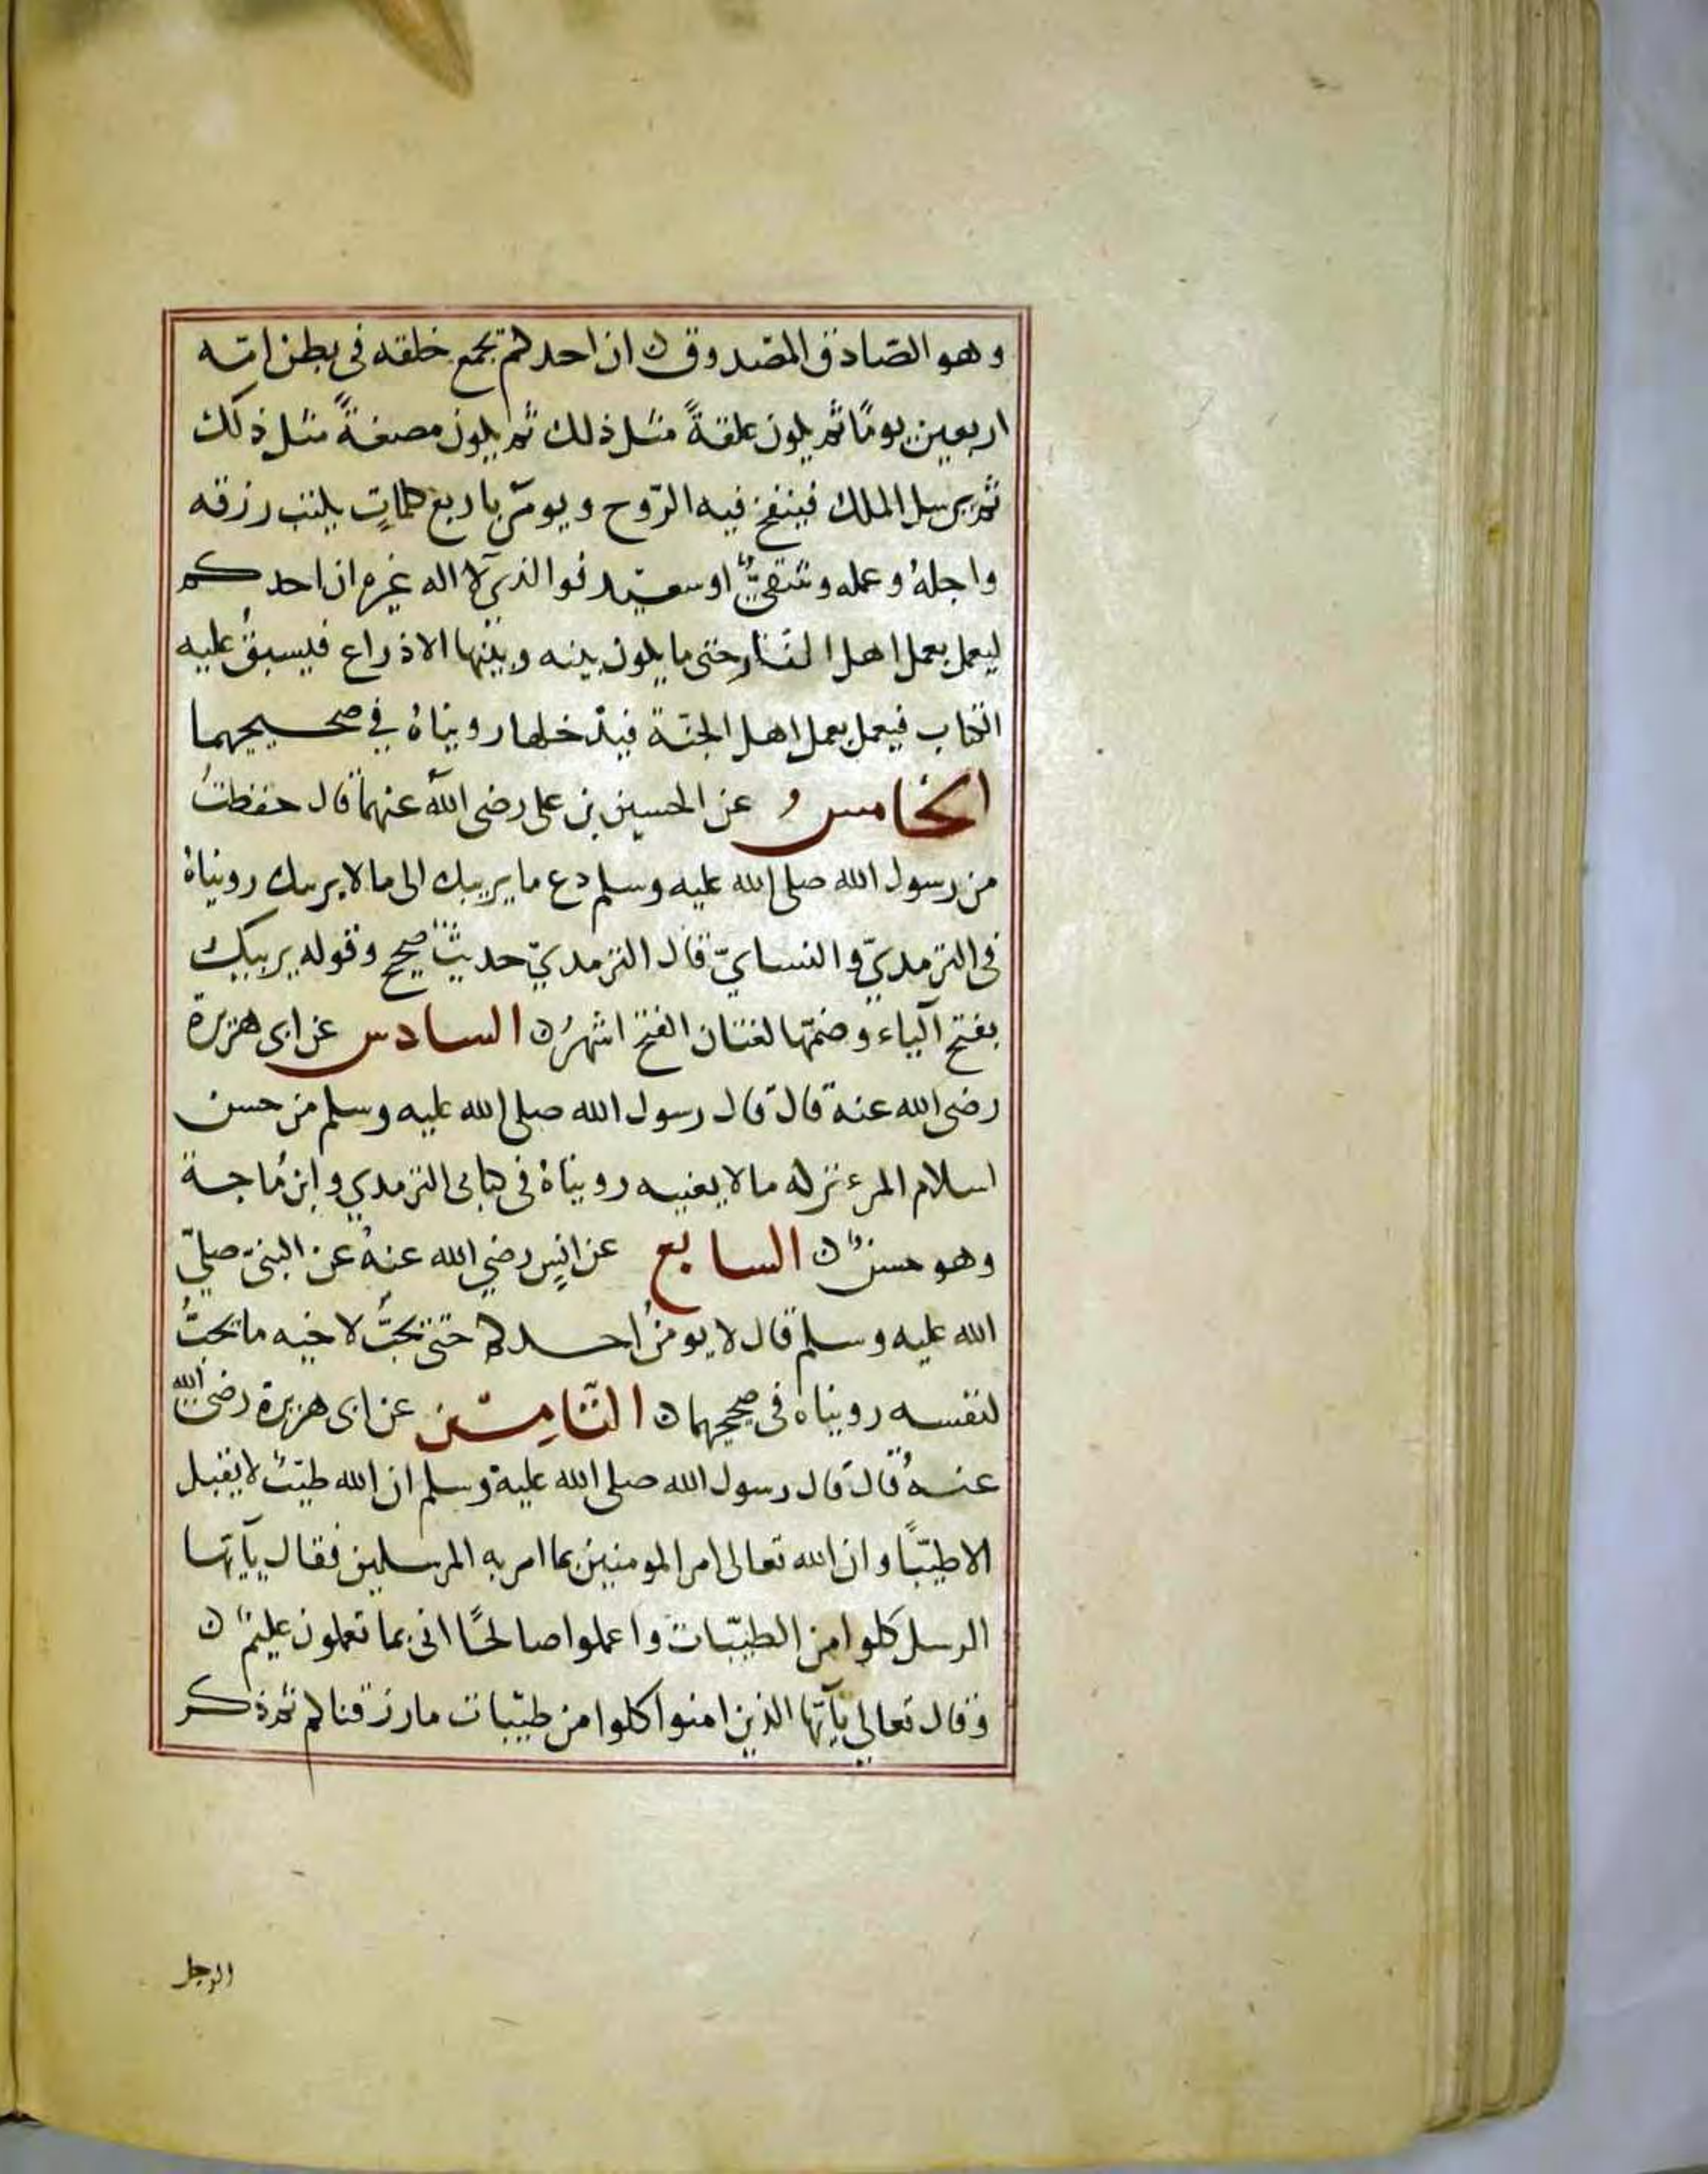 وهو الصّادق المصدوق ن ان احدكم يجمع خلقه فى بطن امّه
اربعين يومًا ثم يكون علقةً مثل ذلك ثم يكون مضغةً مثل ذلك
ثم يرسل الملك فينفخ فيه الرّوح ويومَر باربع كلماتٍ بكتب رزقه
واجلهُ وعمله وشقيٌّ او سعيد فوالذي لا اله غيره ان احدكم
ليعمل بعمل اهل النار حتى ما يكون بينه وبينها الا ذراع فيسبقُ عليه
الكتاب فيعمل بعمل اهل الجنّة فيدخلها رويناهُ في صحيحيهما
الخامس عن الحسين بن على رضى اللّه عنهما قال حفظتُ
من رسول الله صلى الله عليه وسلم دع ما يريبك الى ما لا يريبك رويناهُ
فى الترمديّ والنسايّ قال الترمديّ حديثٌ صحيح وقوله يريبك
بفتح الياء وضمّها لغتان الفتح اشهرُ ن السادس عن ابى هريرة
رضى الله عنه قال قال رسول الله صلى الله عليه وسلم من حسن
اسلام المرء تركه ما لا يعنيه رويناهُ فى كتابى الترمدي وابن ماجة
وهو حسنٌ ن السابع عن انسٍ رضي الله عنهُ عن النبىّ صليّ
الله عليه وسلم قال لا يومنُ احدكم حتى يحبُّ لاخيه ما يحبُّ
لنفسه رويناه فى صحيحهما ن الثّامِن عن ابى هريرة رضى الله
عنهُ قال قال رسول الله صلى الله عليه وسلم ان الله طيّبٌ لا يقبل
الا طيّبًا وان الله تعالى امر المومنين بما امر به المرسلين فقال يآيّها
الرسل كلوا من الطيّبات واعملوا صالحًا انى بما تعملون عليمٌ ن
وقال تعالي يآيّها الذين امنوا كلوا من طيّبات ما رزقناكم ثم ذكر
الرجل